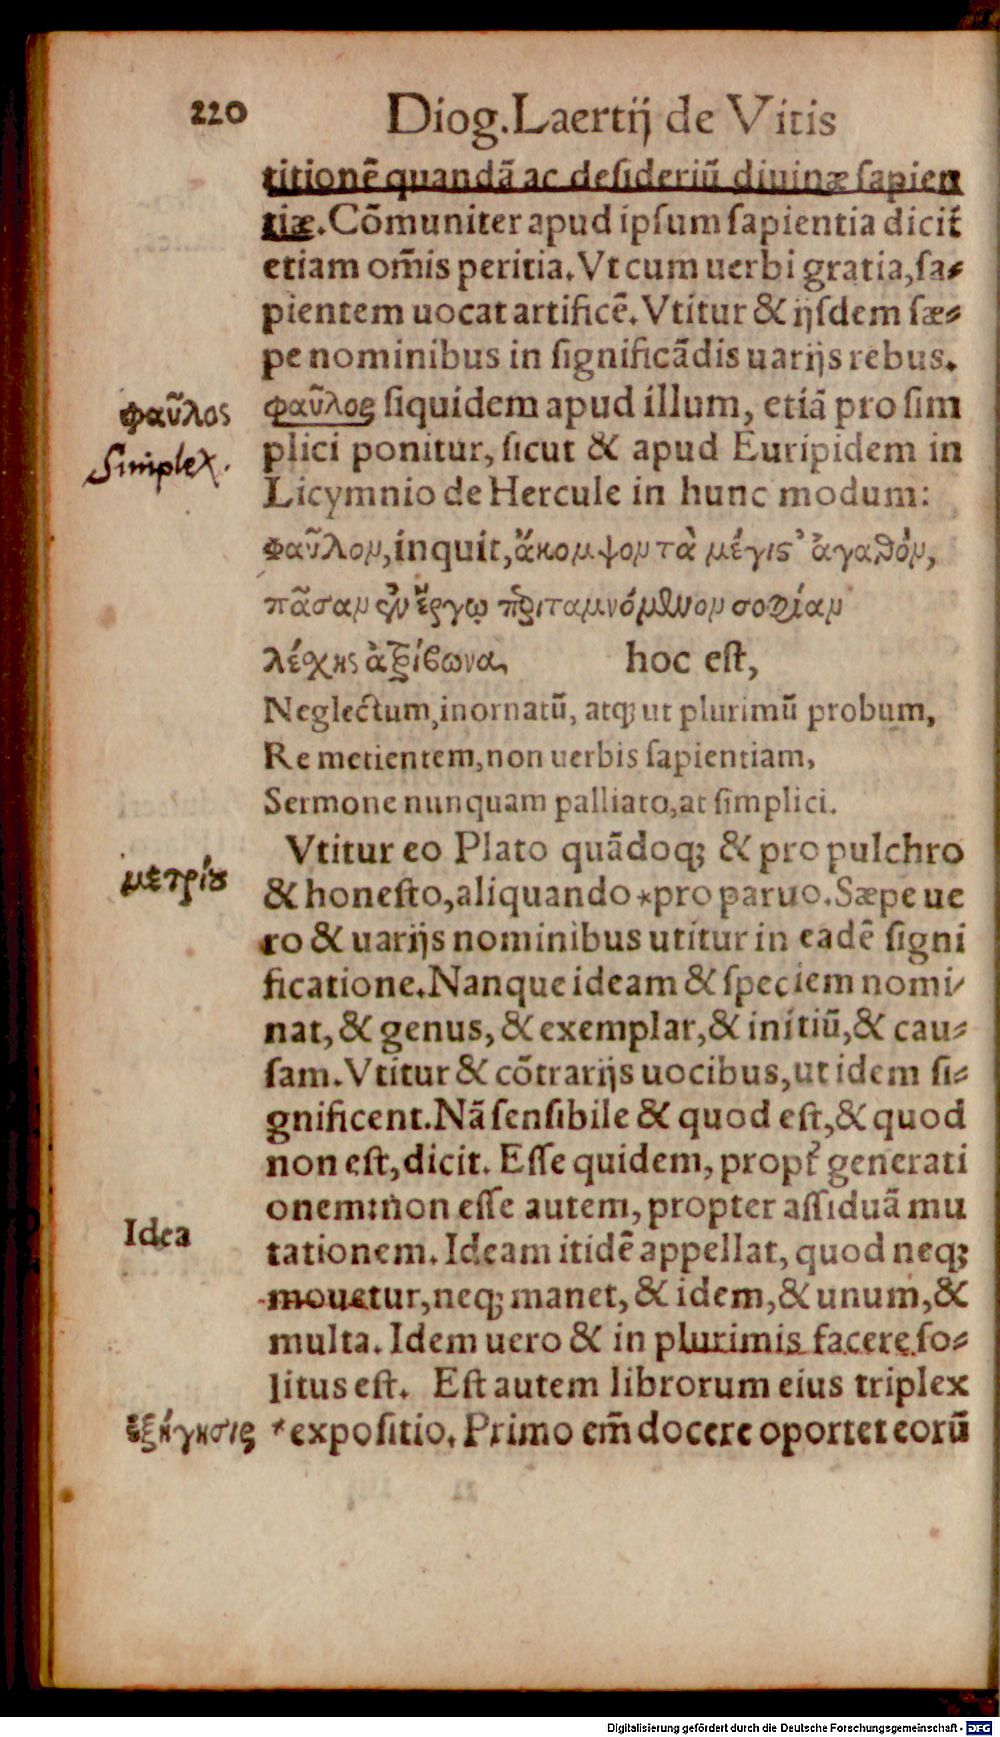 220 Diog. Laertij de Vitis
titionē quandā ac desideriū diuinæ sapien
tiæ. Cōmuniter apud ipsum sapientia dicit̃
etiam om̃is peritia. Vt cum uerbi gratia, sa-
pientem uocat artificē. Vtitur & ijsdem sæ-
pe nominibus in significādis uarijs rebus.
φαῦλος φαῦλος siquidem apud illum, etiā pro sim
Simplex. plici ponitur, sicut & apud Euripidem in
Licymnio de Hercule in hunc modum:
Φαῦλον, inquit, ἄκομψον τὰ μέγιστ᾽ ἀγαθόν,
πᾶσαν ἐν ἔργῳ περιταμνόμενον σοφίαν
λέσχης ἀτρίβωνα, hoc est,
Neglectum, inornatū, atq; ut plurimū probum,
Re metientem, non uerbis sapientiam,
Sermone nunquam palliato, at simplici.
Vtitur eo Plato quādoq; & pro pulchro
μετρίου & honesto, aliquando *pro paruo. Sæpe ue
ro & uarijs nominibus utitur in eadē signi
ficatione. Nanque ideam & speciem nomi-
nat, & genus, & exemplar, & initiū, & cau-
sam. Vtitur & cōtrarijs uocibus, ut idem si-
gnificent. Nā sensibile & quod est, & quod
non est, dicit. Esse quidem, propt̃ generati
onem: non esse autem, propter assiduā mu
Idea tationem. Ideam itidē appellat, quod neq;
mouetur, neq; manet, & idem, & unum, &
multa. Idem uero & in plurimis facere so-
litus est. Est autem librorum eius triplex
ἐξήγησις *expositio. Primo em̃ docere oportet eorū
Digitalisierung gefördert durch die Deutsche Forschungsgemeinschaft - DFG